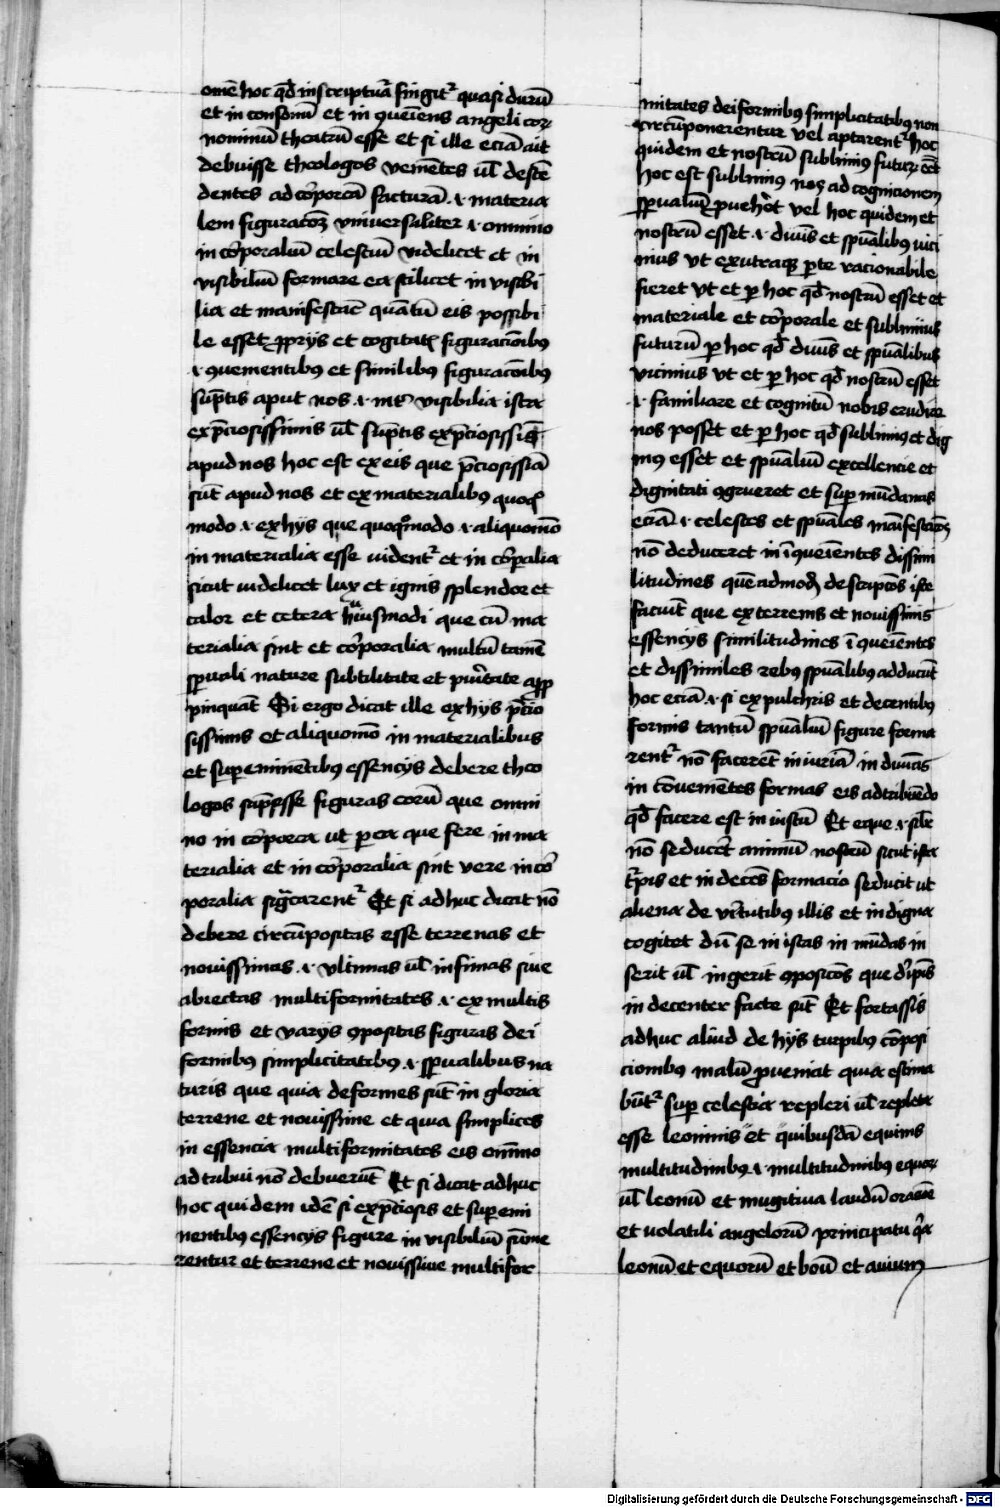 omē hoc qd̄ in scriptura fingitr quasi durū
et in consonū et in queīens angeli corꝫ
nominū theatrū esse et si ille eciā ait
debuisse theologos vemētes ul̄ descē
dentes ad cōrporeā facturā .i. materia
lem figuracōꝫ vniuersaliter .i. omnino
in cōrporaliū celestiū videlicet et in
visibiliū formare ea scilicet in visibi
lia et manifestare quātū eis possibi
le esset ꝓprijs et cogitatꝭ figuracōibꝯ
.i. quementibꝯ et similibꝯ figuracōibꝯ
sūptis aput nos .i. intr visibilia ista
ex p̄ciosissimis ul̄ sūptis ex p̄ciosissīs
apud nos hoc est ex eis que p̄ciosissīa
sūt apud nos et ex materialibꝯ quoqꝫ
modo .i. ex hijs que quoqꝫmodo .i. aliquomō
in materialia esse uidentr et in cōrporalia
sicut uidelicet lux et ignis splendor et
calor et cetera huiusmodi que cū ma
terialia sint et cōrporalia multū tamē
spirituali nature subtilitate et puritate apꝓ
pinquāt Si ergo dicat ille ex hijs p̄cio
sissimis et aliquomō in materialibus
et supereminētibꝯ essencijs debere theo
logos sūpsisse figuras eorū que omni
no in cōrporea ut per ea que fere in ma
terialia et in cōrporalia sint vere in cōr
poralia sigcarentr Et si adhuc dicat nō
debere circūpositas esse terrenas et
nouissimas .i. vltimas ul̄ infimas siue
abiectas multiformitates .i. ex multis
formis et varijs ꝯpositas figuras dei
formibꝯ simplicitatibꝯ .i. spūalibus na
turis que quia deformes sūt in gloria
terrene et nouissime et quia simplices
in essencia multiformitates eis omīno
ad tribui nō debuerūt Et si dicat adhuc
hoc quidem idē si ex p̄ciosis et superemi
nentibꝯ essencijs figure in visibiliū sūme
rentur et terrene et nouissime multifor
mitates deiformibꝯ simplicitatibꝯ non
circūponerentur vel aptarentr hoc
quidem et nostrū sublimiꝯ futurꝫ eēt
hoc est sublimiꝯ nos ad cognicionem
spūaliū ꝓueheret vel hoc quidem et
nostrū esset .i. diuīs et spūalibꝯ uici
nius vt ex utraqꝫ parte racionabile
fieret vt et per hoc qd̄ nostrū esset et
materiale et cōrporale et sublimius
futurū per hoc qd̄ diuīs et spūalibus
vicinius vt et per hoc qd̄ nostrū esset
.i. familiare et cognitū nobis erudire
nos posset et per hoc qd̄ sublimiꝯ et dig
niꝯ esset et spūaliū excellencie et
dignitati ꝯgrueret et super mūdanas
eciā .i. celestes et spūales manifestacōꝫ
nō deduceret in īqueīentes dissimi
litudines quēadmodꝫ descripcōs iste
faciūt que ex terrenis et nouissimis
essencijs similitudines īqueīentes
et dissimiles rebꝯ spūalibꝯ adducūt
hoc eciā .i. si ex pulchris et decentibꝯ
formis tantū spūaliū figure forma
rentr nō facerēt iniuriā in diuinas
in cōuemētes formas eis ad tribuēdo
qd̄ facere est in iustū Et eque .i. sil̄r
nō seducerēt animū nostrū sicut ista
turpis et in decēs formacio seducit ut
aliena de virtutibꝯ illis et in digna
cogitet dū se in istas in mūdas in
serit ul̄ ingerit ꝯposicōs que turpis
in decenter facte sūt Et fortassis
adhuc aliud de hijs turpibꝯ cōposi
cionibꝯ malū ꝓueniat quia estima
būtr super celestia repleri ul̄ repleta
esse leoninis et quibusdā equinis
multitudinibꝯ .i. multitudinibꝯ equorꝫ
ul̄ leonū et mugitiua laudū oracione
et volatili angelorū principatu qia
leonū et equorū et boū et auium